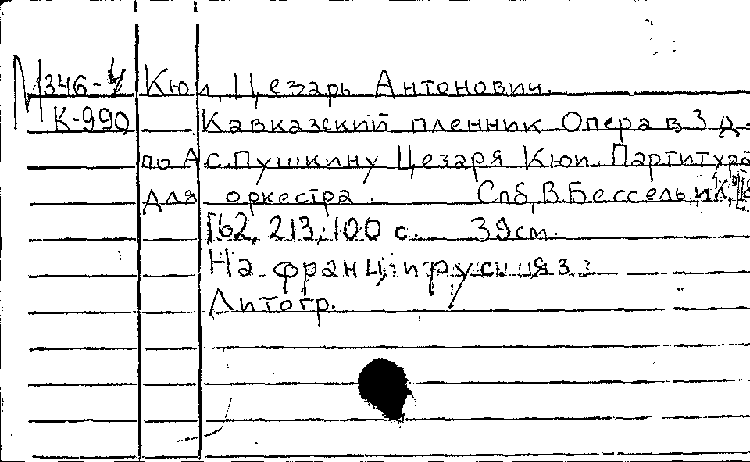 М346-4 Кюи, Цезарь Антонович.
К-990 Кавказский пленник Опера в 3 д.
по А.С.Пушкину Цезаря Кюи. Партитура
для оркестра. Спб, В.Бессель и К,
162, 213, 100 с. 39см.
На франц. и русск яз.
Литогр.